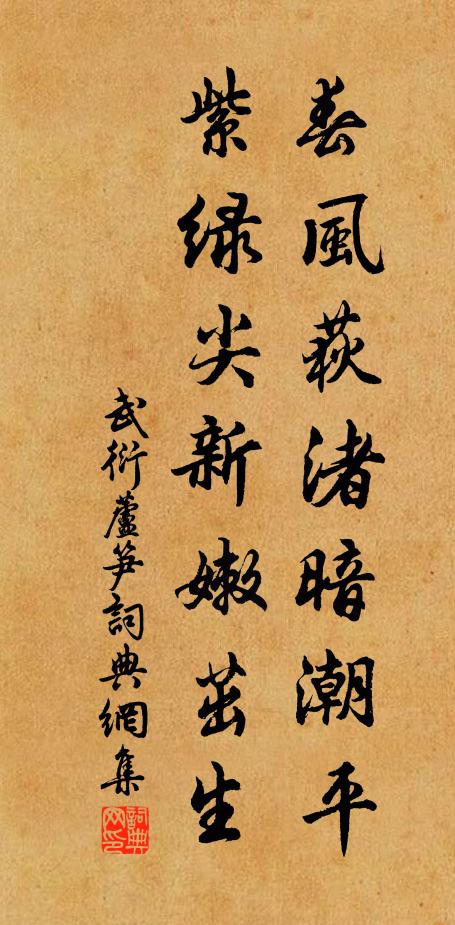 春風荻渚暗潮平
紫绿尖新嫩茁生
武衍蘆笋詞典網集
詞典网印